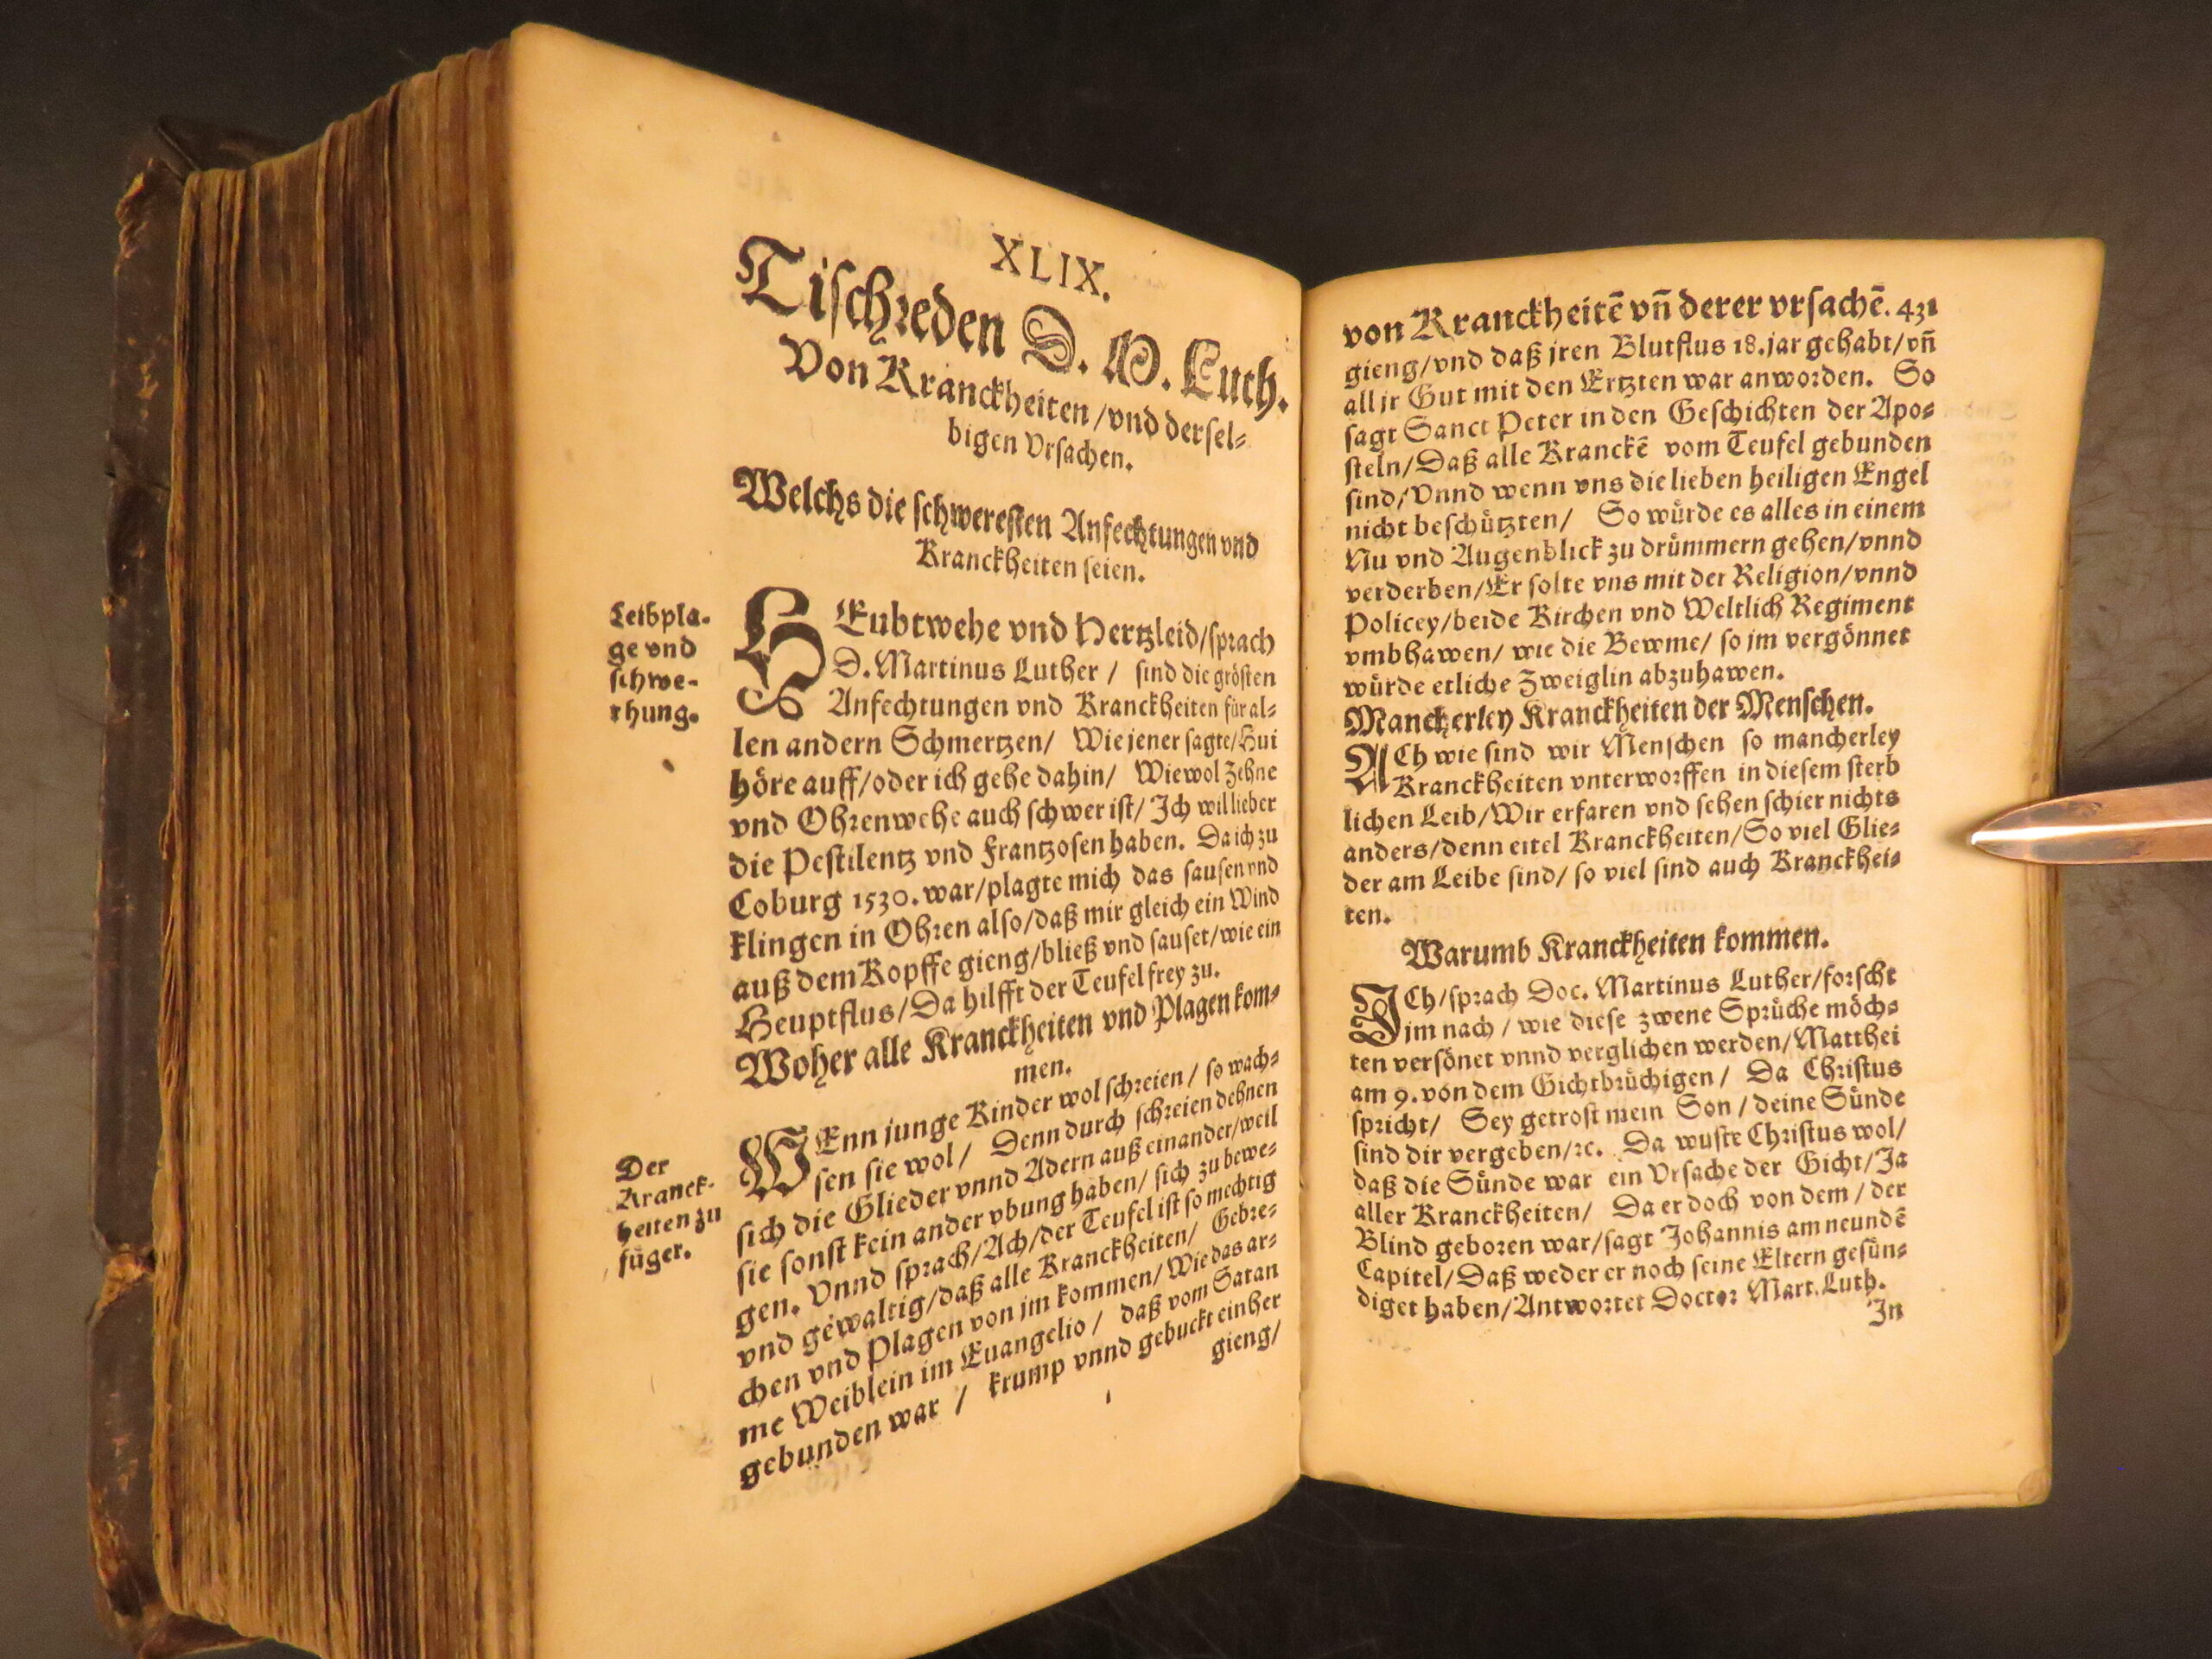 XLIX.
Tiſchreden D. M. Luth.
Von Kranckheiten/vnd derſel⸗
bigen Vrſachen.
Welchs die ſchwereſten Anfechtungen vnd
Kranckheiten ſeien.
Leibpla-
ge vnd
ſchwe-
chung.
HEubtwehe vnd Hertzleid/ſprach
D. Martinus Luther / ſind die gröſten
Anfechtungen vnd Kranckheiten für al⸗
len andern Schmertzen/ Wie jener ſagte/Hui
höre auff/oder ich gehe dahin/ Wiewol Zehne
vnd Ohrenwehe auch ſchwer iſt/ Ich wil lieber
die Peſtilentz vnd Frantzoſen haben. Da ich zu
Coburg 1530. war/plagte mich das ſauſen vnd
klingen in Ohren alſo/daß mir gleich ein Wind
auß dem Kopffe gieng/bließ vnd ſauſet/wie ein
Heuptflus/Da hilfft der Teufel frey zu.
Woher alle Kranckheiten vnd Plagen kom⸗
men.
Der
Kranck-
heiten zu
füger.
WEnn junge Kinder wol ſchreien / ſo wach⸗
ſen ſie wol/ Denn durch ſchreien dehnen
ſich die Glieder vnnd Adern auß einander/weil
ſie ſonſt kein ander vbung haben/ ſich zu bewe⸗
gen. Vnnd ſprach/Ach/der Teufel iſt ſo mechtig
vnd gewaltig/daß alle Kranckheiten/ Gebre⸗
chen vnd Plagen von jm kommen/ Wie das ar⸗
me Weiblein im Euangelio / daß vom Satan
gebunden war / krump vnnd gebuckt einher
gieng/
von Kranckheitē vñ derer vrſachē. 431
gieng/vnd daß jren Blutflus 18. jar gehabt/vñ
all jr Gut mit den Ertzten war anworden. So
ſagt Sanct Peter in den Geſchichten der Apo⸗
ſteln/Daß alle Kranckē vom Teufel gebunden
ſind/Vnnd wenn vns die lieben heiligen Engel
nicht beſchützten/ So würde es alles in einem
Nu vnd Augenblick zu drümmern gehen/vnnd
verderben/Er ſolte vns mit der Religion/vnnd
Policey/beide Kirchen vnd Weltlich Regiment
vmbhawen/ wie die Bewme/ ſo jm vergönnet
würde etliche Zweiglin abzuhawen.
Mancherley Kranckheiten der Menſchen.
ACh wie ſind wir Menſchen ſo mancherley
Kranckheiten vnterworffen in dieſem ſterb
lichen Leib/Wir erfaren vnd ſehen ſchier nichts
anders/denn eitel Kranckheiten/So viel Glie⸗
der am Leibe ſind/ ſo viel ſind auch Kranckhei⸗
ten.
Warumb Kranckheiten kommen.
ICh/ſprach Doc. Martinus Luther/forſcht
jm nach / wie dieſe zwene Sprüche möch⸗
ten verſönet vnnd verglichen werden/Matthei
am 9. von dem Gichtbrüchigen / Da Chriſtus
ſpricht/ Sey getroſt mein Son / deine Sünde
ſind dir vergeben/ꝛc. Da wuſte Chriſtus wol/
daß die Sünde war ein Vrſache der Gicht/Ja
aller Kranckheiten/ Da er doch von dem / der
Blind geboren war/ſagt Johannis am neundē
Capitel/Daß weder er noch ſeine Eltern geſün⸗
diget haben/Antwortet Doctor Mart. Luth.
In